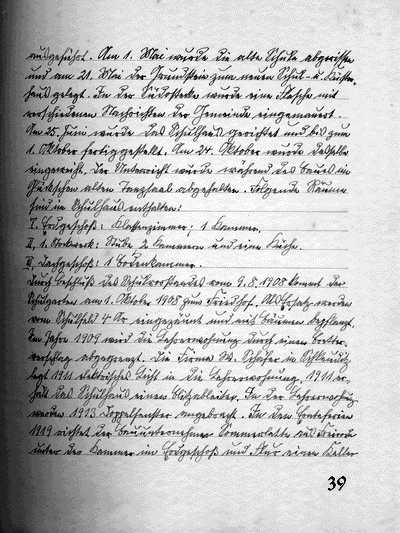 ausgeführt. Am 1. Mai wurde die alte Schule abgerissen
und am 21. Mai der Grundstein zum neuen Schul- u. Küster-
haus gelegt. In der Südostecke wurde eine Flasche mit
verschiedenen Nachrichten der Gemeinde eingemauert.
Am 25. Juni wurde das Schulhaus gerichtet und bis zum
1. Oktober fertiggestellt. Am 24. Oktober wurde dasselbe
eingeweiht. Der Unterricht wurde während des Baues im
alten Tanzsaal abgehalten. Folgende Räume
sind im Schulhaus enthalten:
I. Erdgeschoß: Klassenzimmer; 1 Kammer.
II. 1. Stockwerk: Stube 2 Kammern und eine Küche.
III. Dachgeschoß: 1 Bodenkammer.
Durch Beschluß des Schulvorstandes vom 9.8.1908 kommt der
Schulgarten am 1. Oktober 1908 zum Friedhof. Als Ersatz werden
vom Schulfeld 4 Ar eingezäunt und mit Bäumen bepflanzt.
Im Jahre 1909 wird die Lehrerwohnung durch einen Bretter-
verschlag abgegrenzt. Die Firma Schäfer in
legt 1911 elektrisches Licht in die Lehrerwohnung. 1911 er-
hält das Schulhaus einen Blitzableiter. In der Lehrerwohng.
werden 1913 Doppelfenster angebracht. In den Ernteferien
1919 richtet der Bauunternehmer Sommerlatte aus
unter der Kammer im Erdgeschoß und Flur einen Keller
39